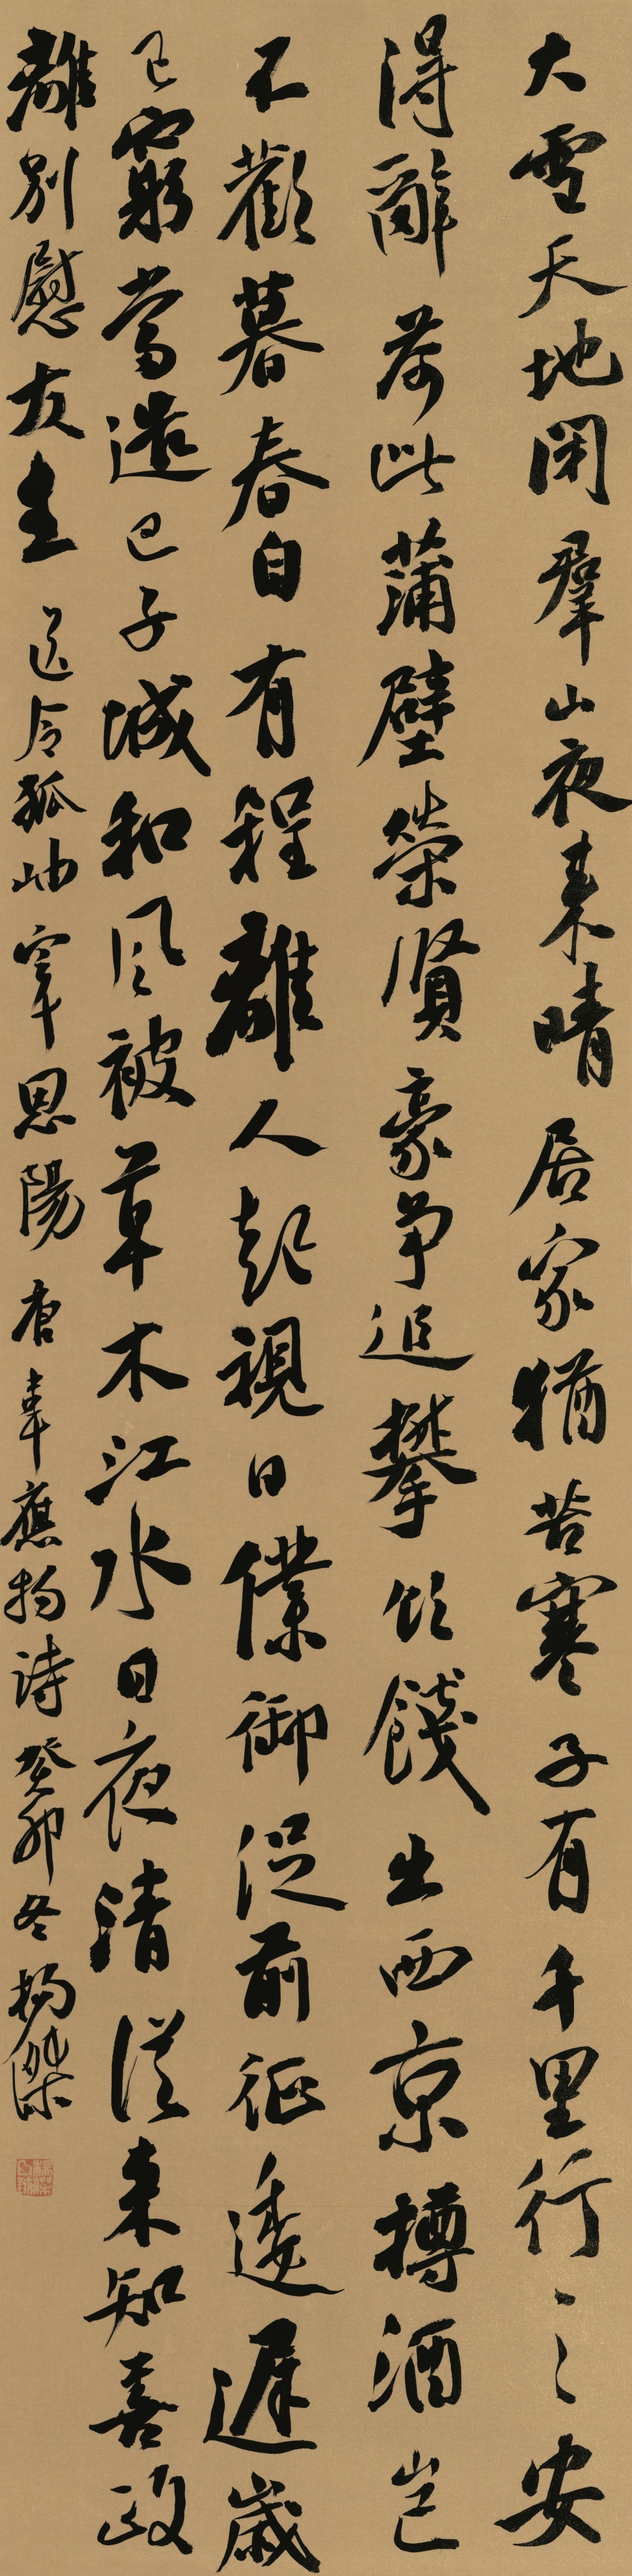 大雪天地閉群山夜来晴居家猶苦寒子有千里行〻〻安
得辭荷此蒲璧榮賢豪争追攀飲餞出西京樽酒豈
不歡暮春自有程離人起視日僕御促前征逶遲歲
已窮當造巴子城和風被草木江水日夜清從来知善政
離別慰友生 送令狐岫宰恩陽 唐韋應物詩 癸卯冬 楊傑